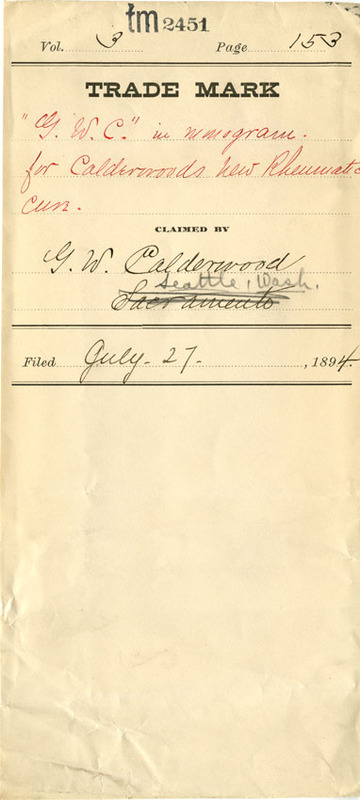 tm 2451
Vol. 3 Page 153
TRADE MARK
"G. W. C." in monogram.
for Calderwoods New Rheumatic
Cure.
CLAIMED BY
G. W. Calderwood
Seattle, Wash.
Sacramento
Filed July - 27 - , 1894.